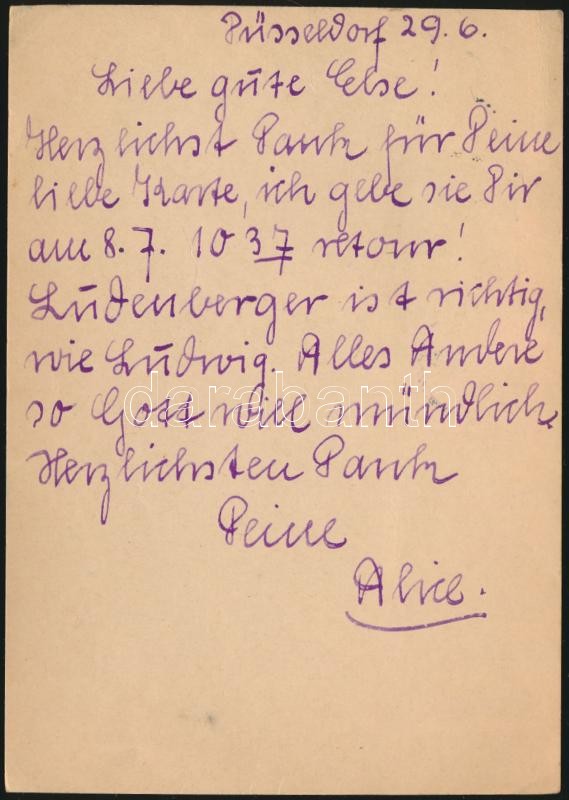 Düsseldorf 29.6.
Liebe gute Else!
Herzlichst Dank für Deine
liebe Karte, ich gebe sie Dir
am 8.7. 10 37 retour!
Ludenberger ist richtig,
wie Ludwig. Alles Andere
so Gott will mündlich.
Herzlichsten Dank
Deine
Alice.
darabanth